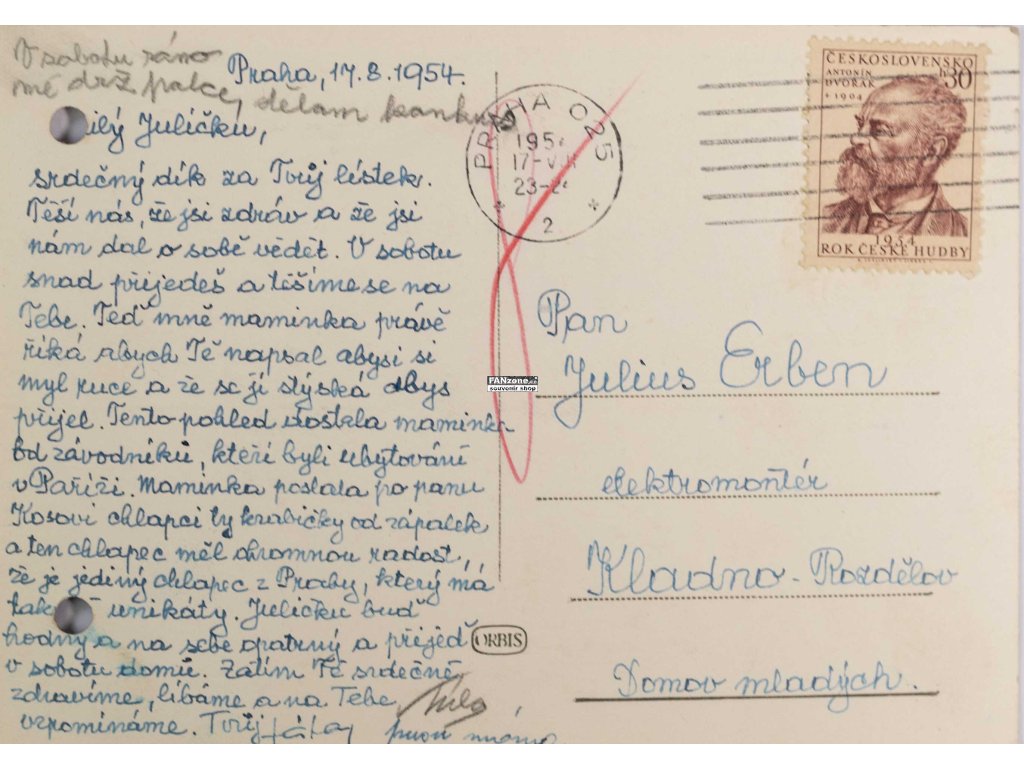 V sobotu ráno
mě drž palce, dělam konkurs
Praha, 17.8.1954.
ilý Julíčku,
srdečný dík za Tvůj lístek.
Těší nás, že jsi zdráv a že jsi
nám dal o sobě vědět. V sobotu
snad přijedeš a těšíme se na
Tebe. Teď mně maminka právě
říká abych Tě napsal abysi si
myl ruce a že se jí stýská abys
přijel. Tento pohled dostala maminka
od závodníků, kteří byli ubytováni
v Paříži. Maminka poslala po panu
Kosovi chlapci ty krabičky od zápalek
a ten chlapec měl ohromnou radost,
že je jediný chlapec z Prahy, který má
tak unikáty. Julíčku buď
hodný a na sebe opatrný a přijeď
v sobotu domů. Zatím Tě srdečně
zdravíme, líbáme a na Tebe
vzpomínáme. Tvůj táta
PRAHA 025
195
17-VIII
23-24
2
ČESKOSLOVENSKO
ANTONÍN DVOŘÁK
† 1904
h30
1954
ROK ČESKÉ HUDBY
FANzone.cz
souvenir shop
Pan
Julius Erben
elektromontér
Kladno - Rozdělov
Domov mladých.
ORBIS